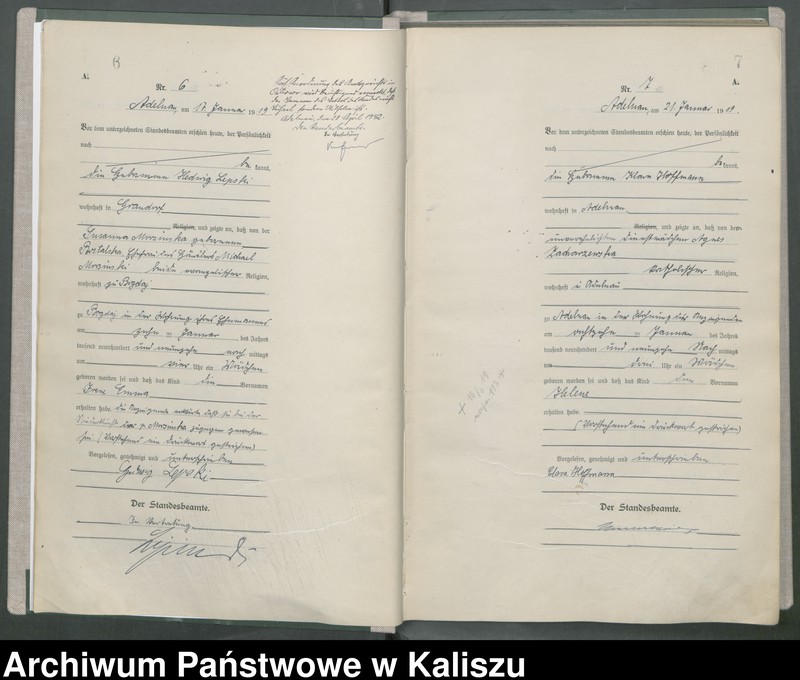 6
A.
Nr. 6
Adelnau, am 17. Januar 1919
Adelnau, den 29. April 1942.
Der Standesbeamte.
In Vertretung
Vor dem unterzeichneten Standesbeamten erschien heute, der Persönlichkeit
nach
be kannt,
die Hebamme Hedwig Lepski
wohnhaft in Grandorf
Religion, und zeigte an, daß von der
Susanna Mrozinska geborenen
Ehefrau des Häuslers Michael
Mrozinski beide evangelischer Religion,
wohnhaft zu Bogdaj
zu Bogdaj in der Wohnung ihres Ehemannes
am zehn = Januar des Jahres
tausend neunhundert und neunzehn nach mittags
um vier Uhr ein Mädchen
geboren worden sei und daß das Kind die Vornamen
Irene Emma
erhalten habe. Die Anzeigende erklärte, daß sie bei der
Niederkunft der p. Mrozinska zugegen gewesen
sei. (Vorstehend ein Druckwort gestrichen)
Vorgelesen, genehmigt und unterschrieben
Hedwig Lepski
Der Standesbeamte.
In Vertretung
7
A.
Nr. 7
Adelnau, am 21. Januar 1919.
Vor dem unterzeichneten Standesbeamten erschien heute, der Persönlichkeit
nach
be kannt,
die Hebamme Klara Hoffmann
wohnhaft in Adelnau
Religion, und zeigte an, daß von der
unverehelichten Dienstmädchen Agnes
Zacharzewska
katholischer Religion,
wohnhaft in Adelnau
zu Adelnau in der Wohnung der Anzeigenden
am achtzehn = Januar des Jahres
tausend neunhundert und neunzehn Nach mittags
um drei Uhr ein Mädchen
geboren worden sei und daß das Kind den Vornamen
Helene
erhalten habe.
(Vorstehend ein Druckwort gestrichen)
Vorgelesen, genehmigt und unterschrieben
Klara Hoffmann
Der Standesbeamte.
Archiwum Państwowe w Kaliszu